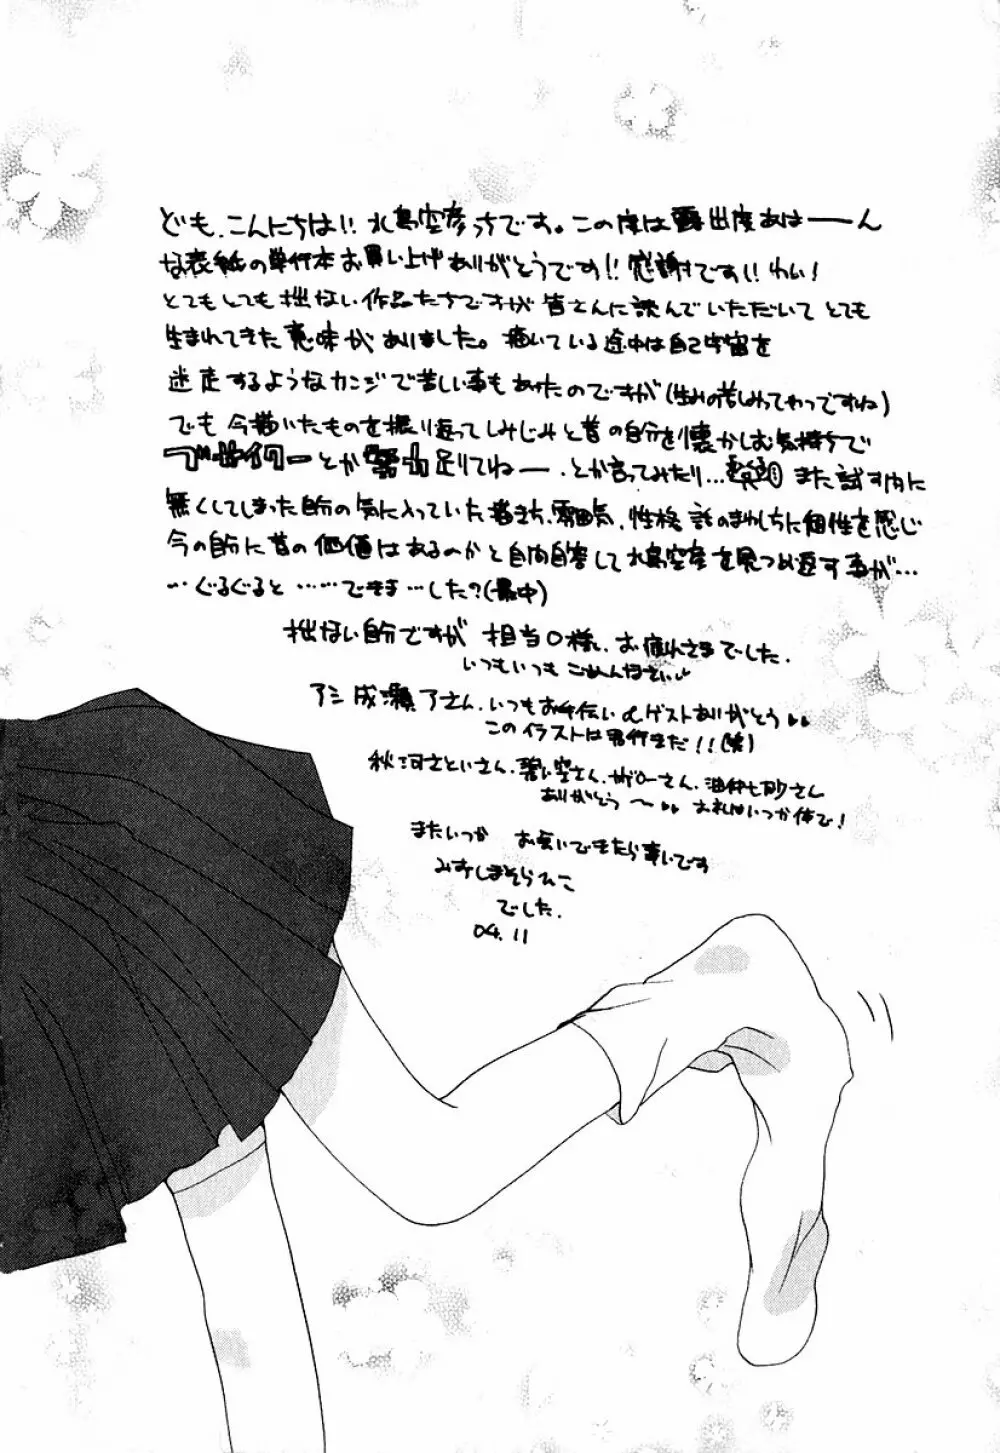 ども、こんにちは!! 水島空彦っちです。この度は露出度あはーーん
な表紙の単行本お買い上げありがとうです!! 感謝です!! わい!
とてもとても拙ない作品たちですが皆さんに読んでいただいてとても
生まれてきた意味がありました。描いている途中は自己宇宙を
迷走するようなカンジで苦しい事もあったのですが(生みの苦しみってやつですね)
でも今描いたものを振り返ってしみじみと昔の自分を懐かしむ気持ちで
ブサイクーとか努力足りてねー、とか言ってみたり… また試す内に
無くしてしまった自分の気に入っていた描き方、雰囲気、性格、話のまわしらに個性を感じ
今の自分に昔の価値はあるのかと自問自答して水島空彦を見つめ返す事が…
…ぐるぐると……できま…した?(最中)
拙ない自分ですが 担当O様、お疲れさまでした。
いつもいつもごめんなさい
アシ成瀬了さん、いつもお手伝い&ゲストありがとう
このイラストは君行きだ!!(笑)
秋河さといさん、碧い空さん、ガローさん、油仲七砂さん
ありがとう〜 お礼はいつか体で!
またいつか お会いできたら幸いです
みずしまそらひこ
でした。
04.11